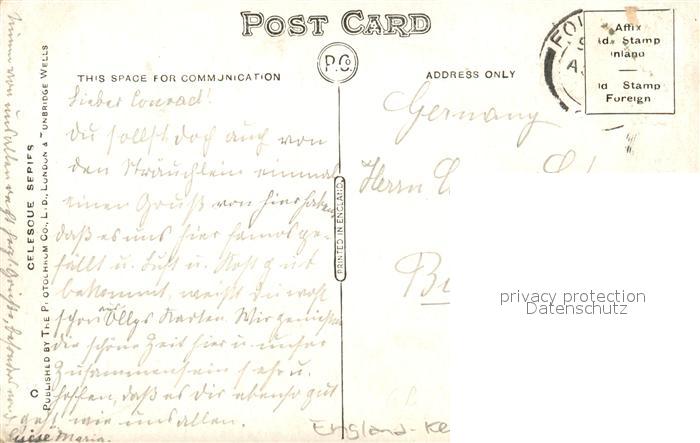 POST CARD
P.Co.
THIS SPACE FOR COMMUNICATION
ADDRESS ONLY
Affix
Stamp
Inland
Stamp
Foreign
Lieber Conrad!
Du sollst doch auch von
den Sträuchlein einmal
einen Gruß von hier haben,
daß es uns hier famos ge-
fällt u. Luft u. Kost gut
bekommt, weißt Du wohl
schon aus Ollys Karten. Wir genießen
die schöne Zeit hier u. unser
Zusammensein sehr u.
hoffen, daß es Dir ebenso gut
geht wie uns allen.
Luise Maria.
Germany
Herrn
CELESQUE SERIES
PUBLISHED BY THE PHOTOCHROM CO., LTD., LONDON & TUNBRIDGE WELLS
PRINTED IN ENGLAND
England-Ke
privacy protection
Datenschutz